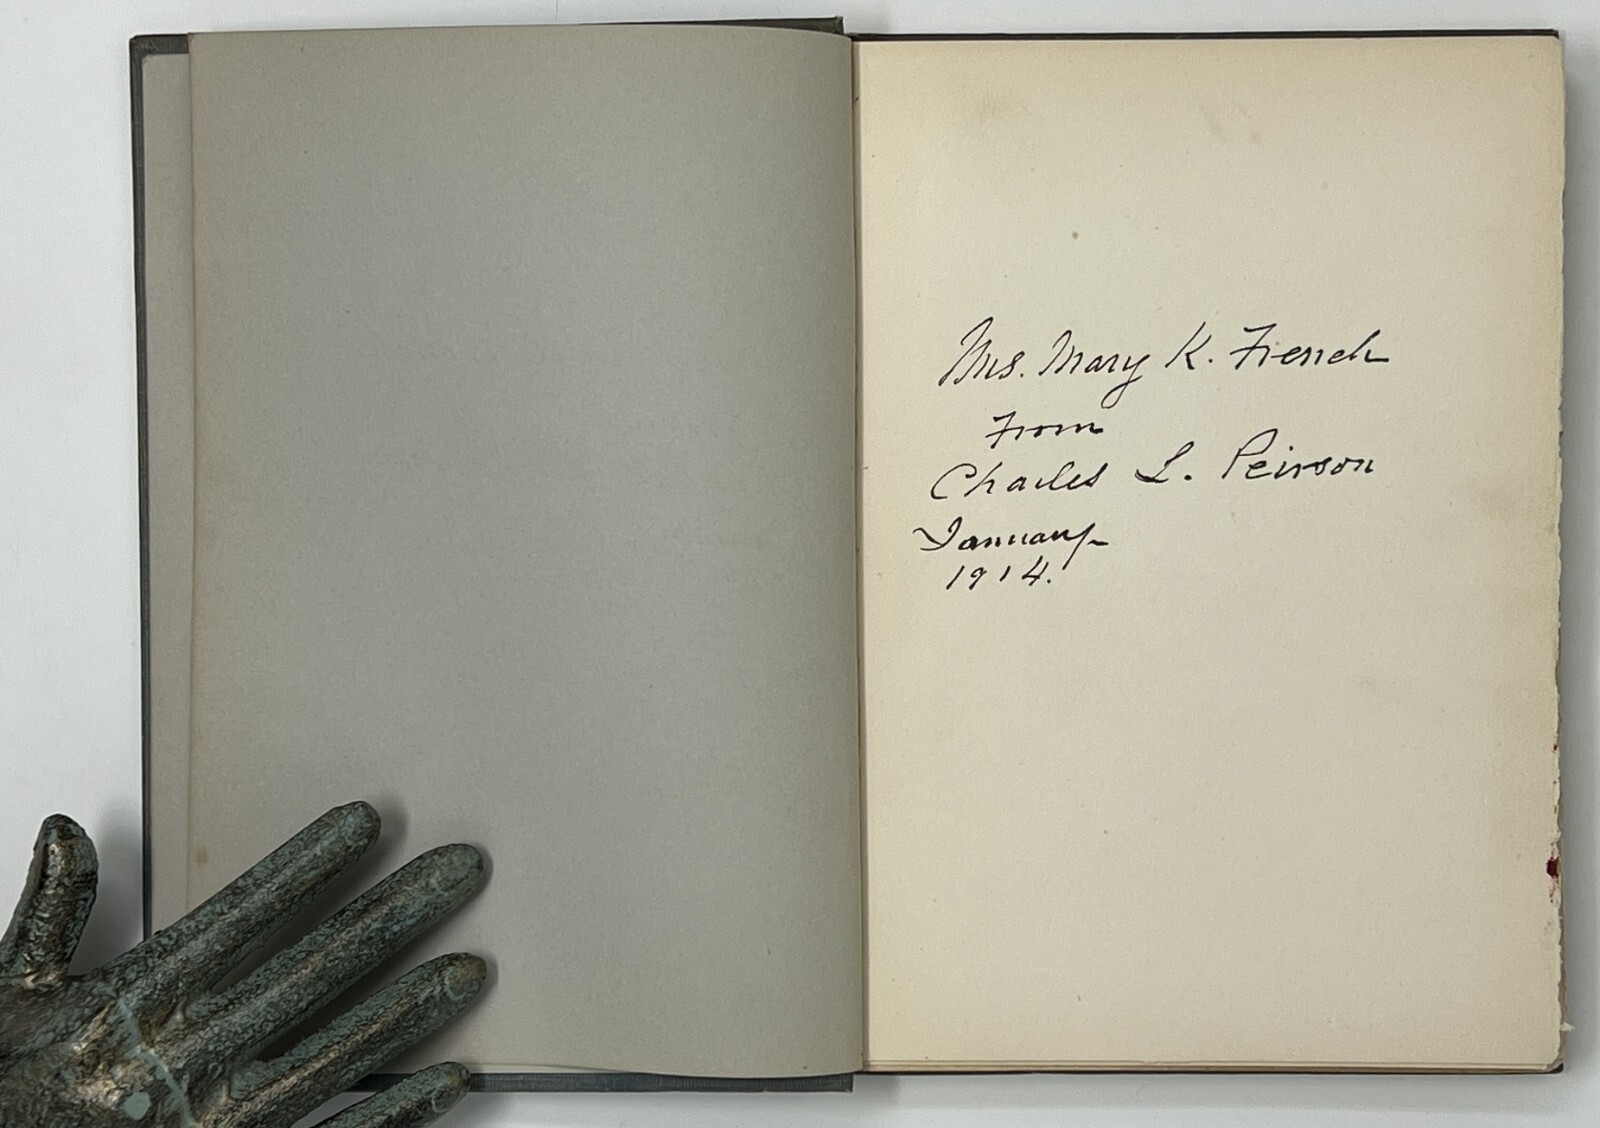 Mrs. Mary K. French
From
Charles L. Peirson
January
1914.